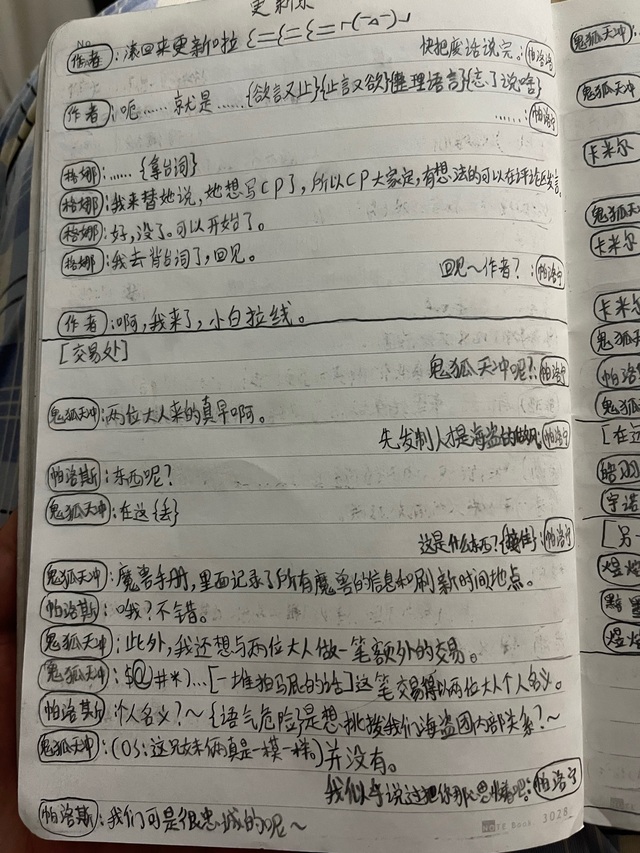 更新
No.
作者：滚回来更新啦 ξ=(=(=ξ=r(-△-)┘
快把废话说完。：帕洛宁
作者：呃……就是……{欲言又止}{止言又欲}{整理语言}{忘了说啥}
……：帕洛宁
格娜：……{拿台词}
格娜：我来替她说，她想写CP了，所以CP大家定，有想法的可以在评论区发言。
格娜：好，没了。可以开始了。
格娜：我去背台词了，回见。
回见～作者？：帕洛宁
作者：啊，我来了，小白拉线。
[交易处]
鬼狐天冲呢？：帕洛宁
鬼狐天冲：两位大人来的真早啊。
先发制人才是海盗的做风：帕洛宁
帕洛斯：东西呢？
鬼狐天冲：在这{丢}
这是什么东西？{接住}：帕洛宁
鬼狐天冲：魔兽手册，里面记录了所有魔兽的信息和刷新时间地点。
帕洛斯：哦？不错。
鬼狐天冲：此外，我还想与两位大人做一笔额外的交易。
鬼狐天冲：$@#*)…[一堆拍马屁的话]这笔交易得以两位大人个人名义。
帕洛斯：个人名义？～{语气危险}是想挑拨我们海盗团内部关系？～
鬼狐天冲：(OS：这兄妹俩真是一模一样。)并没有。
我们似乎说过把你那心思憋着吧：帕洛宁
帕洛斯：我们可是很忠诚的呢～
NOTE BOOK 3028
鬼狐天冲
鬼狐天冲
卡米尔
鬼狐天冲
卡米尔
卡米尔
鬼狐天
帕洛
鬼狐天
[在这
宇诺
[另一